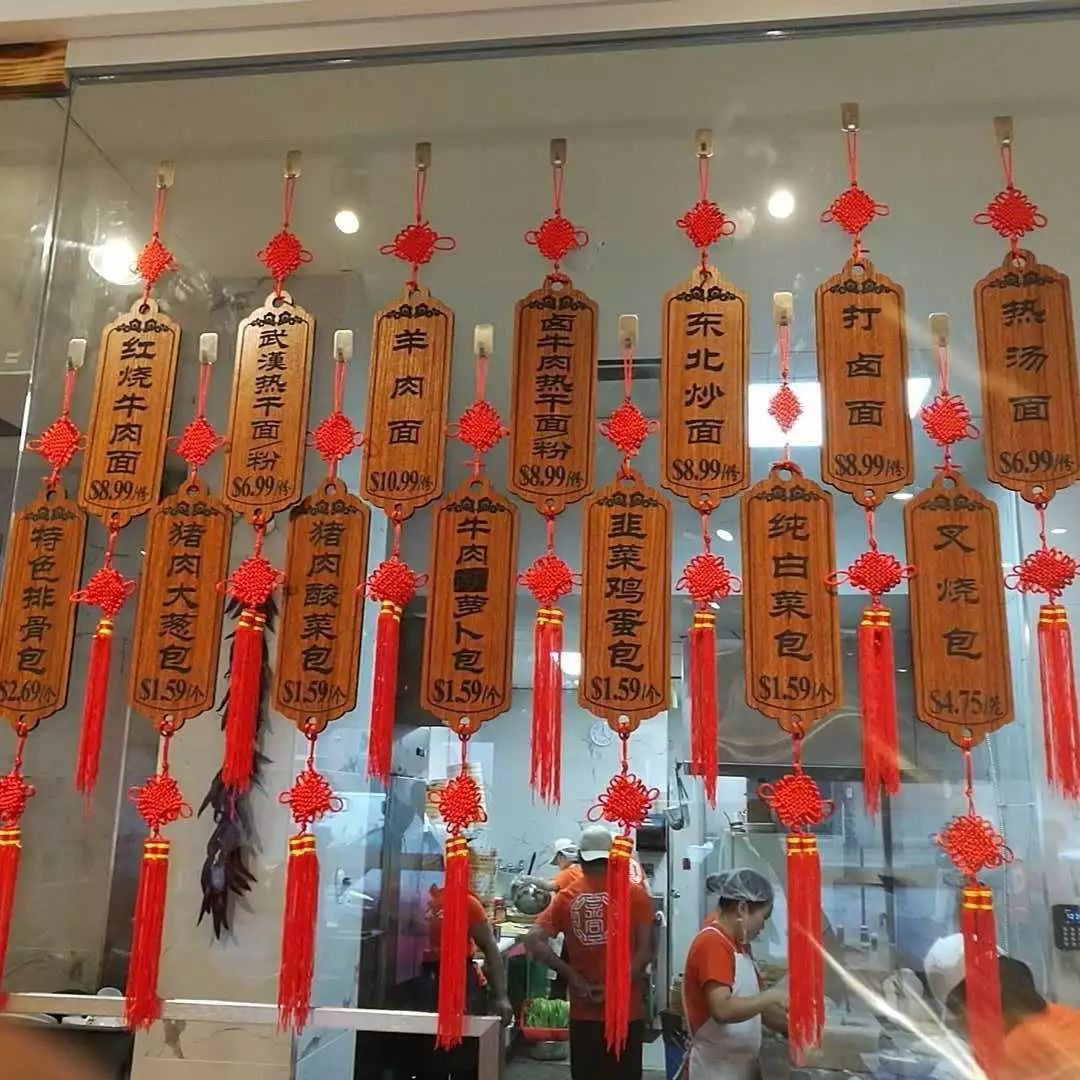 红烧牛肉面
$8.99/份
武漢热干面/粉
$6.99/份
羊肉面
$10.99/份
卤牛肉热干面/粉
$8.99/份
东北炒面
$8.99/份
打卤面
$8.99/份
热汤面
$6.99/份
特色排骨包
$2.69/个
猪肉大葱包
$1.59/个
猪肉酸菜包
$1.59/个
牛肉萝卜包
$1.59/个
韭菜鸡蛋包
$1.59/个
纯白菜包
$1.59/个
叉烧包
$4.75